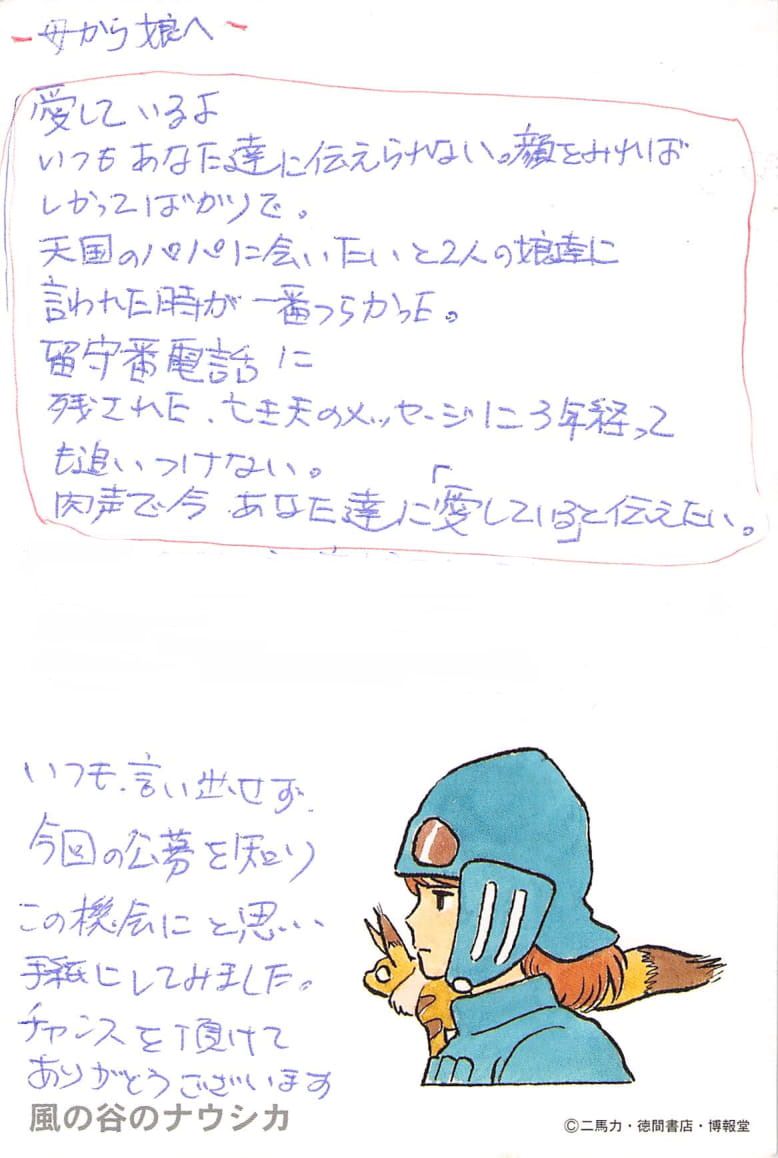 - 母から娘へ -
愛しているよ
いつもあなた達に伝えられない。顔をみれば
しかってばかりで。
天国のパパに会いたいと2人の娘達に
言われた時が一番つらかった。
留守番電話に
残された、亡き夫のメッセージに3年経って
も追いつけない。
肉声で今あなた達に「愛している」と伝えたい。
いつも、言い出せず、
今回の公募を知り
この機会にと思い
手紙にしてみました。
チャンスを頂けて
ありがとうございます
風の谷のナウシカ
©二馬力・徳間書店・博報堂